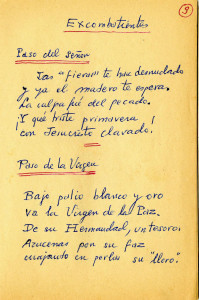 3
Excombatientes
Paso del Señor
Las "fieras" te han desnudado
y ya el madero te espera.
La culpa fué del pecado.
¡Y qué triste primavera!
con Jesucristo clavado.
Paso de la Virgen
Bajo palio blanco y oro
va la Virgen de la Luz.
De su Hermandad, un tesoro.
Azucenas por su faz
cuajando en perlas su "lloro".